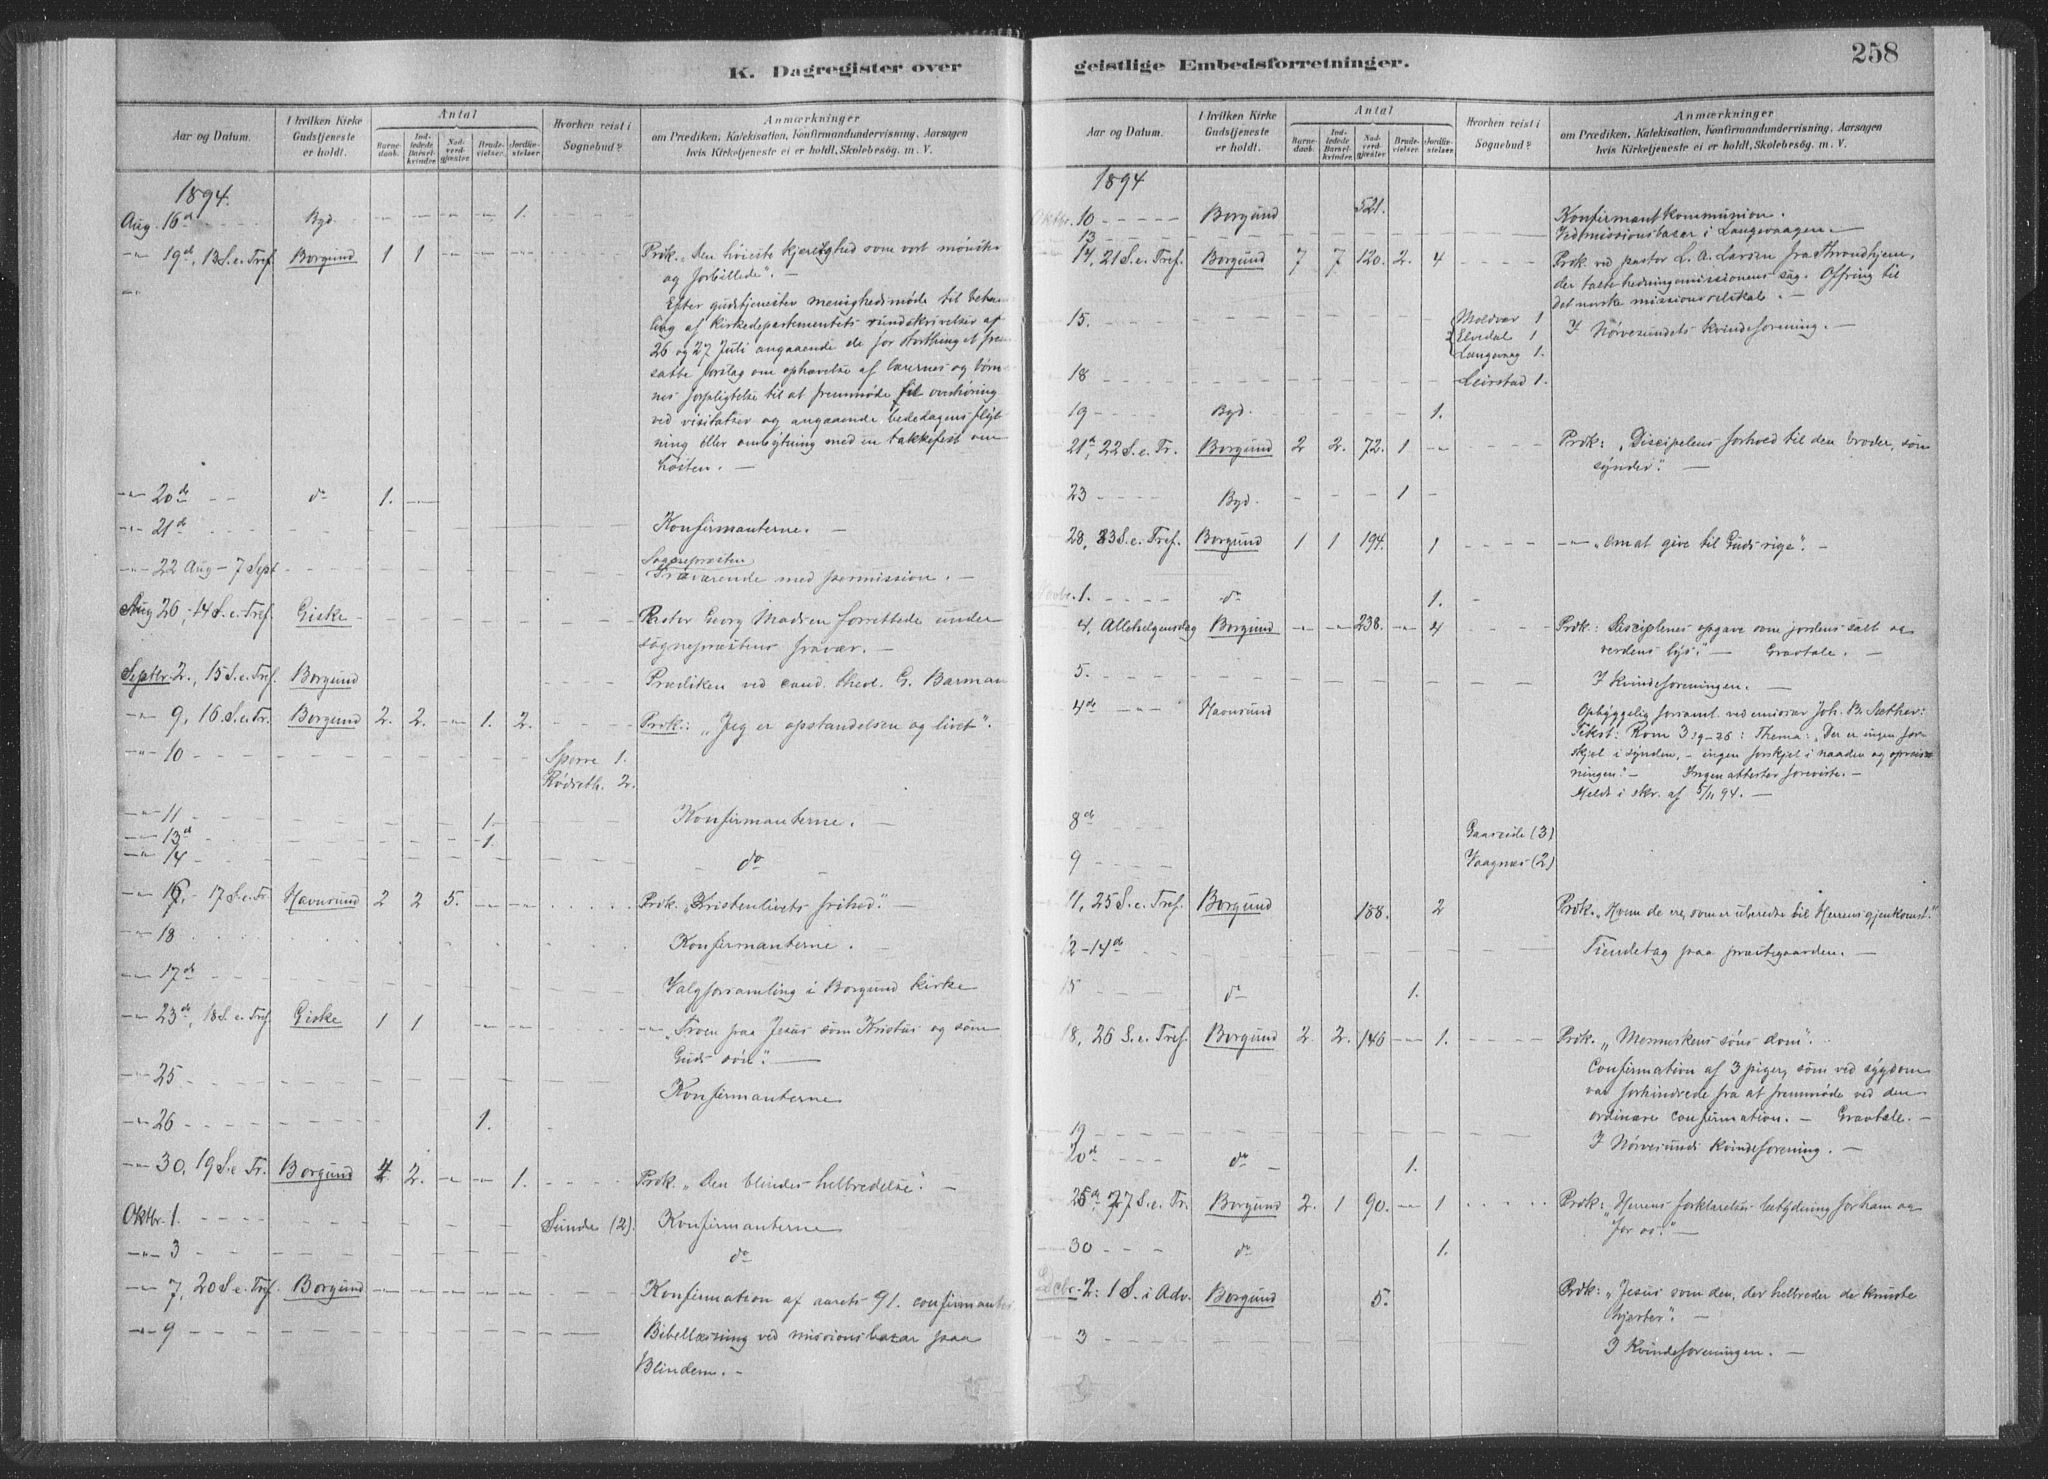 258
K. Dagregister over geistlige Embedsforretninger.
Aar og Datum.
I hvilken Kirke Gudstjeneste er holdt.
Antal
Barnedaab.
Indledede Barselkvinder.
Nadverdgjæster
Brudevielser.
Jordfæstelser.
Hvorhen reist i Sognebud?
Anmærkninger
om Prædiken, Katekisation, Konfirmandundervisning, Aarsagen
hvis Kirketjeneste ei er holdt, Skolebesøg. m. V.
1894.
Aug. 16d Byd. 1.
19d, 13 S. e. Tref. Borgund 1 1 Prdk. "Den høieste kjerlighed som vort mønster
og forbillede". —
Efter gudstjenesten menighedsmøde til behand
ling af kirkedepartementets rundskrivelser af
26 og 27 Juli angaaende de for storthinget frem
satte forslag om ophævelse af lærernes og bør
nes forpligtelse til at fremmøde til overhøring
ved visitatser og angaaende bededagens flyt
ning eller ombytning med en takkefest om
høsten. —
20de do 1.
21de Konfirmanterne. —
22 Aug - 7 Sept Sognepræsten
Fraværende med permission. —
Aug 26, 14 S. e. Tref. Giske Pastor Georg Madsen forrettede under
sognepræstens fravær. —
Septbr. 2., 15 S. e. Tref. Borgund Prædiken ved cand. theol. G. Barman
9, 16 S. e. Tr. Borgund 2. 2. 1. 2. Prdk.: "Jeg er opstandelsen og livet".
10 Sperre 1.
Rødseth. 2.
11 1. Konfirmanterne. —
13d 1.
14 do
16, 17 S. e. Tr. Havnsund 2 2 5. Prdk. "Kristenlivets frihed" —
18 Konfirmanterne. —
17de Valgforsamling i Borgund kirke
23de, 18 S. e. Tref. Giske 1 1 "Troen paa Jesus som Kristus og som
Guds søn". —
25 Konfirmanterne
26 1.
30, 19 S. e. Tr. Borgund 4 2. 1. Prdk. "Den blindes helbredelse". —
Oktbr. 1. Sunde (2). Konfirmanterne
3 do
7, 20 S. e. Tref. Borgund Konfirmation af aarets 91. confirmanter
9 Bibellæsning ved missionsbazar paa
Blindem. —
Aar og Datum.
I hvilken Kirke Gudstjeneste er holdt.
Antal
Barnedaab.
Indledede Barselkvinder.
Nadverdgjæster
Brudevielser.
Jordfæstelser.
Hvorhen reist i Sognebud?
Anmærkninger
om Prædiken, Katekisation, Konfirmandundervisning, Aarsagen
hvis Kirketjeneste ei er holdt, Skolebesøg. m. V.
1894
Oktbr. 10 Borgund 521. Konfirmantkommunion.
13 Ved missionsbazar i Langevaagen.
14, 21 S. e. Tref. Borgund 7 7 120. 2. 4 Prdk. ved pastor L. A. Larsen fra Throndhjem,
der talte hedningemissionens sag. Offring til
det norske missionsselskab. —
15. Moldvær 1
Elvedal 1
Langevaag 1.
I Nørvesundets kvindeforening. —
18 Leirstad 1.
19 Byd. 1.
21de, 22 S. e. Tr. Borgund 2 2. 72. 1 Prdk: "Disciplens forhold til den broder, som
synder". —
23 Byd. 1
28, 23 S. e. Tref. Borgund 1 1 194. 1 "Om at give til Guds rige". —
Novbr. 1. do 1.
4, Allehelgensdag Borgund 238. 4 Prdk: Disciplenes opgave som jordens salt og
verdens lys". — Gravtale. —
5. I kvindeforeningen. —
4de Havnsund Opbyggelig forsaml. ved emissær Joh. B. Sæther:
Tekst: Rom 3 19-26: Thema: "Der er ingen for
skjel i synden, - ingen forskjel i naaden og opreis
ningen". — Ingen attester foreviste. —
Meldt i skr. af 5/11 94. —
8de Gaaseide (3)
9 Vaagnes (2)
11, 25 S. e. Tref. Borgund 188. 2 Prdk. "Hvem de er, som er uberedte til Herrens gjenkomst."
12-14de Tiendetag paa præstegaarden. —
15 do 1.
18, 26 S. e. Tref. Borgund 2. 2. 146 1. Prdk. "Menneskens søns dom".
Confirmation af 3 piger, som ved sygdom
var forhindrede fra at fremmøde ved den
ordinære confirmation. — Gravtale. —
19 I Nørvesunds kvindeforening. —
20de do 1.
25de 27 S. e. Tr. Borgund 2. 1 90. 1 Prdk: "Herrens forklarelses betydning for ham og
for os". —
30 do 1.
Dcbr. 2: 1 S. i Adv. Borgund 5. Prdk: "Jesus som den, der helbreder de knuste
hjerter". —
3 I Kvindeforeningen. —